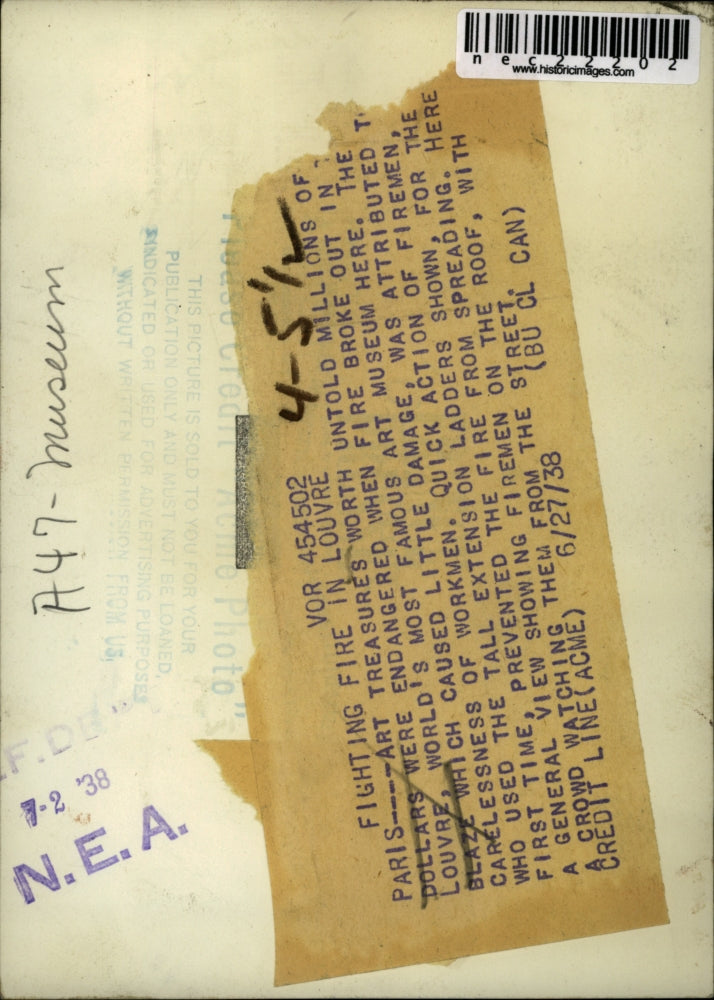 nec22202
www.historicimages.com
A47-Museum
THIS PICTURE IS SOLD TO YOU FOR YOUR
PUBLICATION ONLY AND MUST NOT BE LOANED,
SYNDICATED OR USED FOR ADVERTISING PURPOSES
WITHOUT WRITTEN PERMISSION FROM US
Please Credit "Acme Photo"
7-2 '38
N.E.A.
4-5½
VOR 454502
FIGHTING FIRE IN LOUVRE
PARIS----ART TREASURES WORTH UNTOLD MILLIONS OF
DOLLARS WERE ENDANGERED WHEN FIRE BROKE OUT IN THE
LOUVRE, WORLD'S MOST FAMOUS ART MUSEUM HERE. THE
BLAZE WHICH CAUSED LITTLE DAMAGE, WAS ATTRIBUTED T
CARELESSNESS OF WORKMEN. QUICK ACTION OF FIREMEN,
WHO USED THE TALL EXTENSION LADDERS SHOWN, FOR THE
FIRST TIME, PREVENTED THE FIRE FROM SPREADING. HERE
A GENERAL VIEW SHOWING FIREMEN ON THE ROOF, WITH
A CROWD WATCHING THEM FROM THE STREET.
CREDIT LINE(ACME) 6/27/38 (BU CL CAN)